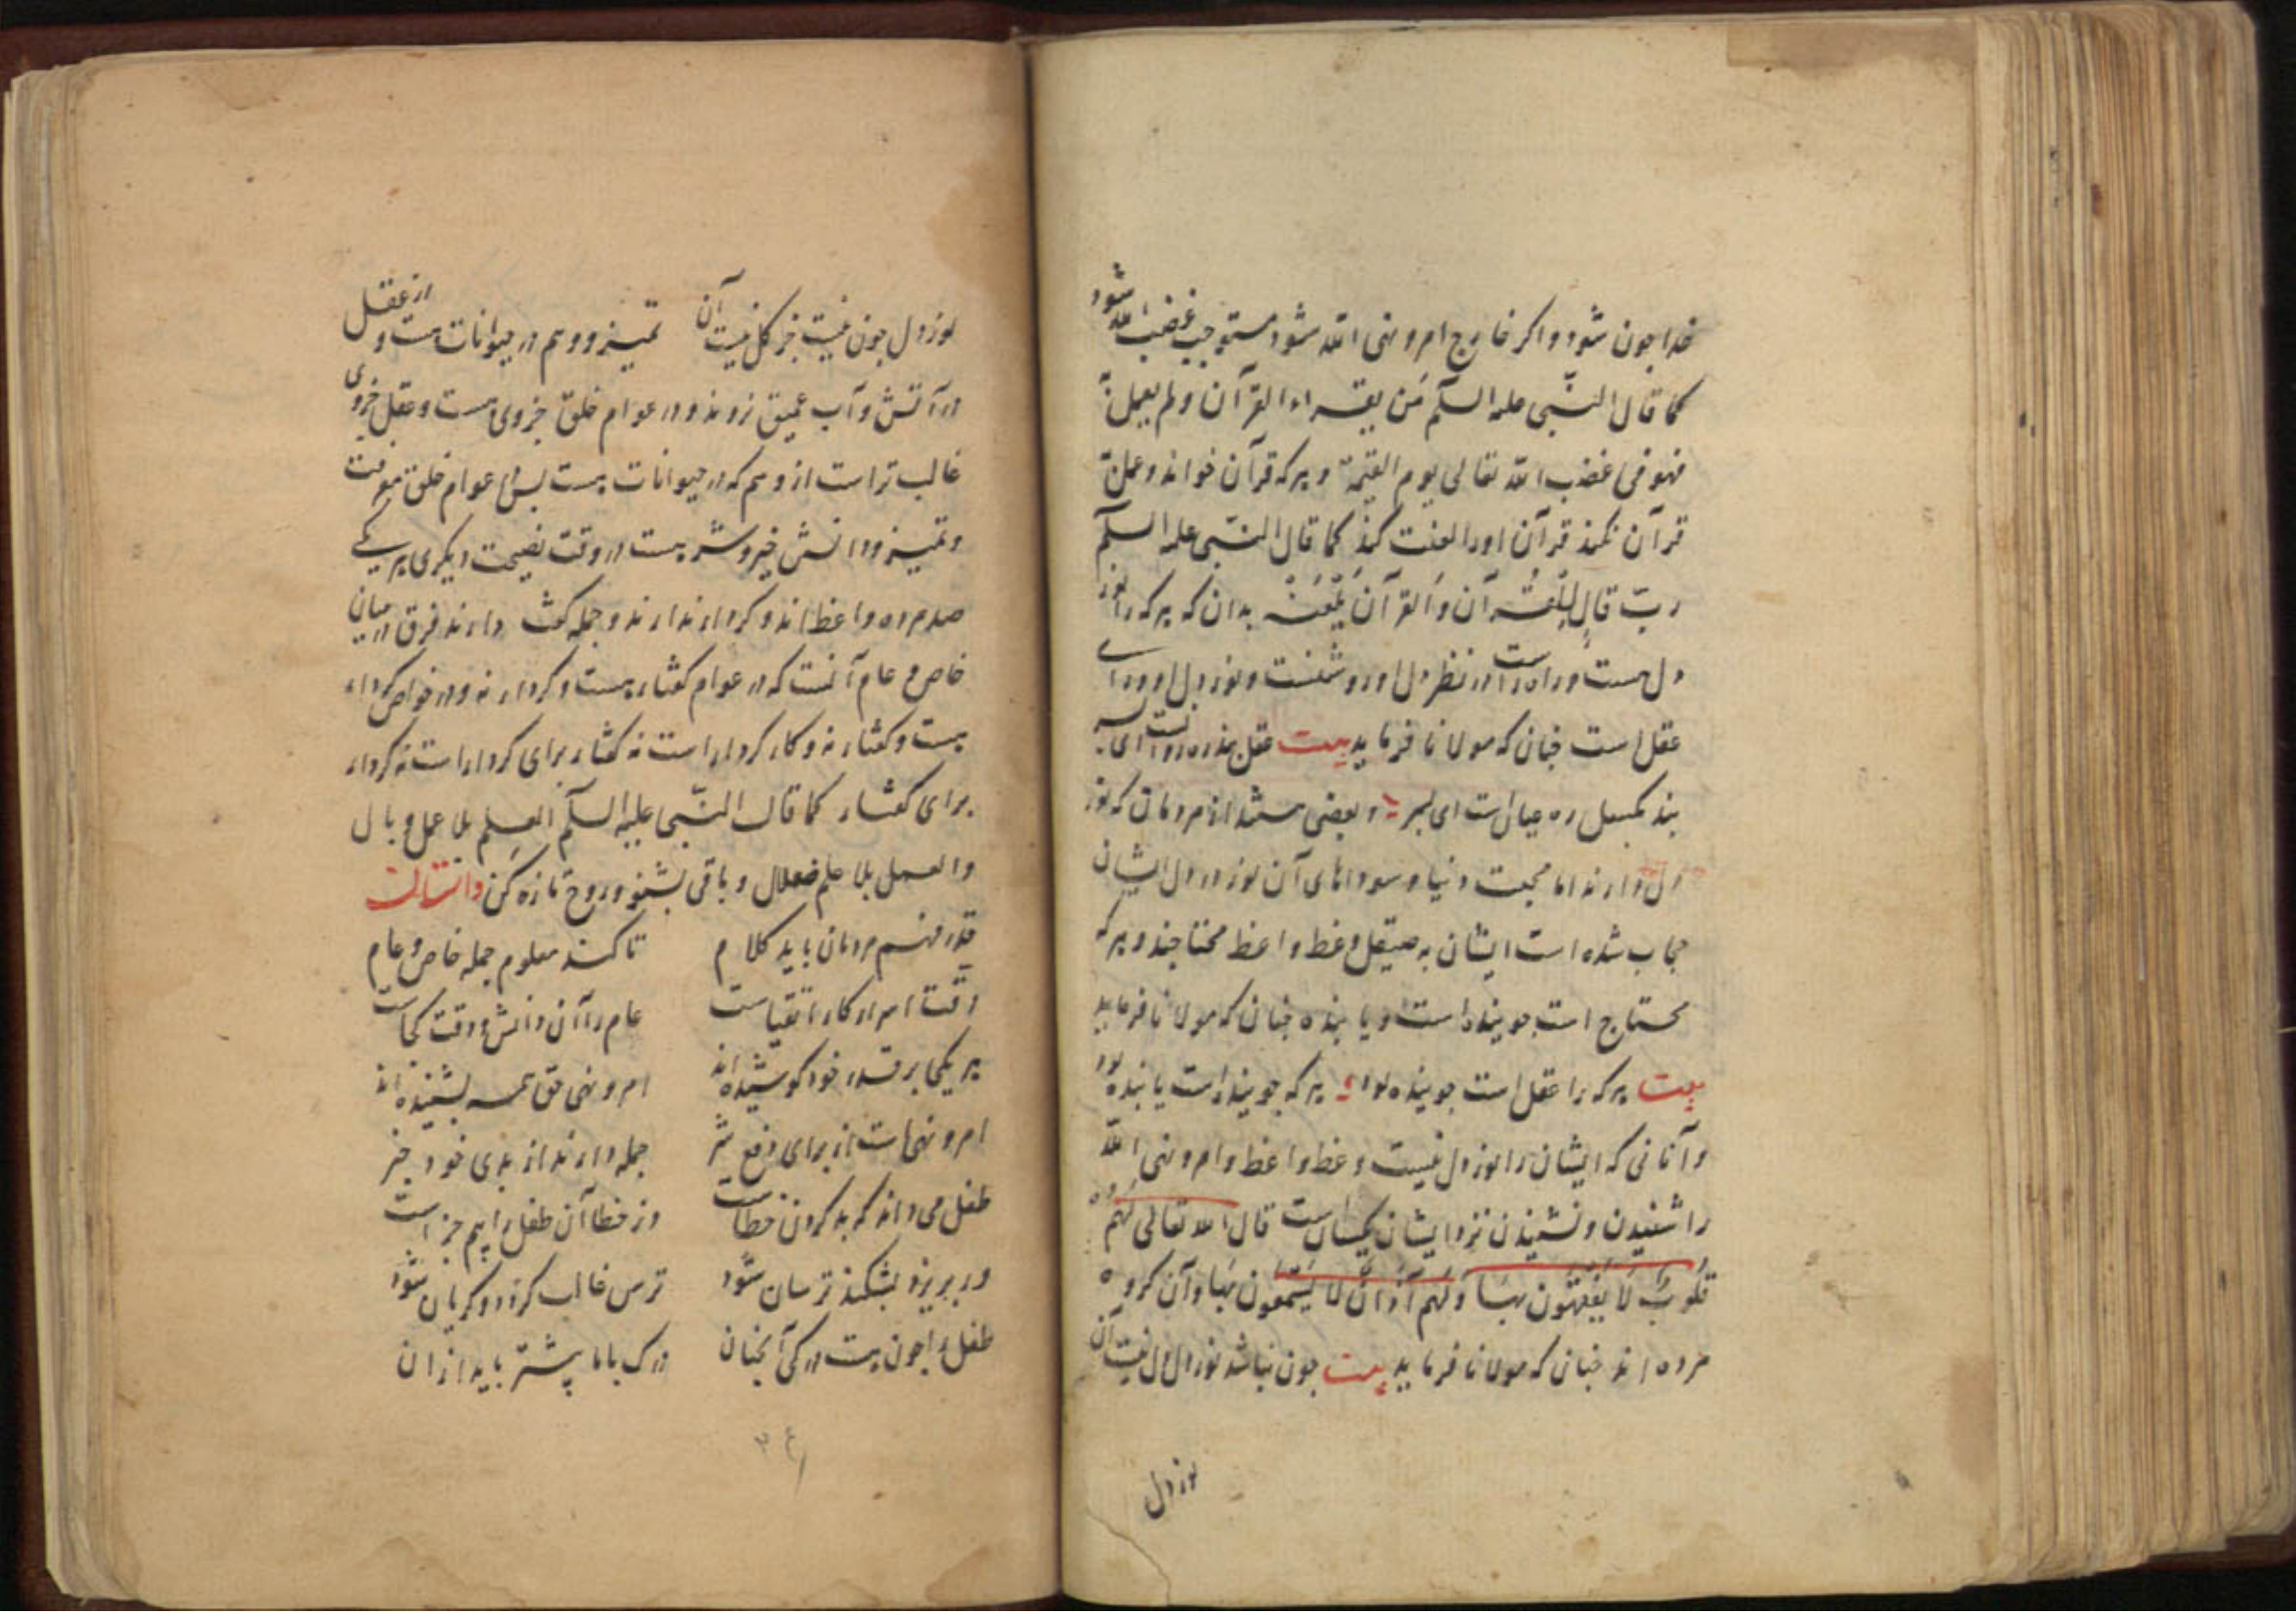 خدا چون شود و اکر خارج امر و نهی الله شود مستوجب غضب الله شود
کما قال النبی علیه السلم من یقراء القرآن و لم یعمل به
فهو فی غضب الله تعالی یوم القیمة و هر که قرآن خواند و عمل به
قرآن نکند قرآن اورا لعنت کند کما قال النبی علیه السلم
رب قال للقرآن و القرآن یلعنه بدان که هر که را نور
دل هست و راه راست در نظر دل او روشنست و نور دل او را
عقل است چنان که مولانا فرماید بیت عقل
ره ای پسر و بعضی هستند از مردمان که نور
دل دارند اما محبت دنیا و سوداهای آن نور در دل ایشان
حجاب شده است ایشان به صیقل وعظ واعظ محتاجند و هر که
محتاج است جوینده است و یابنده چنان که مولانا فرماید
بیت هر که را عقل است جوینده بود هر که جوینده است یابنده بود
و آنانی که ایشان را نور دل نیست وعظ واعظ و امر و نهی الله
را شنیدن و نشنیدن نزد ایشان یکسان است قال الله تعالی لهم
قلوب لا یفقهون بها و لهم آذان لا یسمعون بها و آن کروه
مرده اند چنان که مولانا فرماید بیت چون نباشد نور دل دل نیست آن
نور دل
نور دل چون نیست جز کل نیست آن تمییز و وهم در حیوانات هست و از عقل
در آتش و آب عمیق نروند و در عوام خلق جزوی هست و عقل جزوی
غالب تر است از وهم که در حیوانات هست پس عوام خلق معرفت
و تمییز و دانش خیر و شر هست در وقت نصیحت دیکری هر یکی
صد مرده واعظ اند و کردار ندارند و جمله کفت دارند فرق در میان
خاص و عام آنست که در عوام کفتار هست و کردار نه و در خواص کردار
هست و کفتار نه و کار کردار است نه کفتار برای کردار است نه کردار
برای کفتار کما قال النبی علیه السلم العلم بلا عمل وبال
والعمل بلا علم ضلال و باقی بشنو و روح تازه کن داستانست
قدر فهم مردمان باید کلام تا کند معلوم جمله خاص و عام
دقت اسرار کار اتقیاست عام را آن دانش و دقت کجاست
هر یکی بر قدر خود کوشیده اند امر و نهی حق همه بشنیده اند
امر و نهی است از برای دفع شر جمله دارند از بدی خود خبر
طفل می داند که بد کردن خطاست وز خطا آن طفل را هم جزاست
ور بریزد بشکند ترسان شود ترس غالب کردد و کریان شود
طفل را چون هست درکی آنچنان درک بابا پیشتر باید از آن